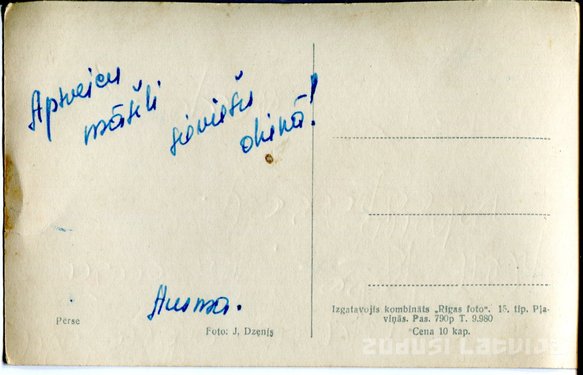 Apsveicu
māsiņ
sieviešu
dienā!
Ausma.
Pērse
Foto: J. Dzenis
Izgatavojis kombināts „Rīgas foto“. 15. tip. Pļa-
viņās. Pas. 790p T. 9.980
Cena 10 kap.
zudusi Latvija